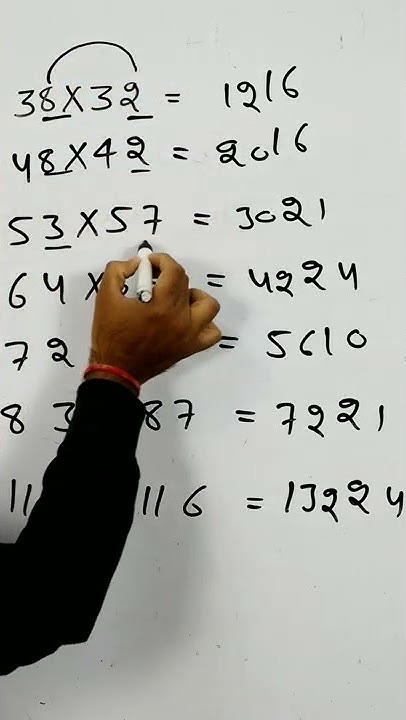 38×32 = 1216
48×42 = 2016
53×57 = 3021
64× = 4224
72 = 5610
83 87 = 7221
11 116 = 13224